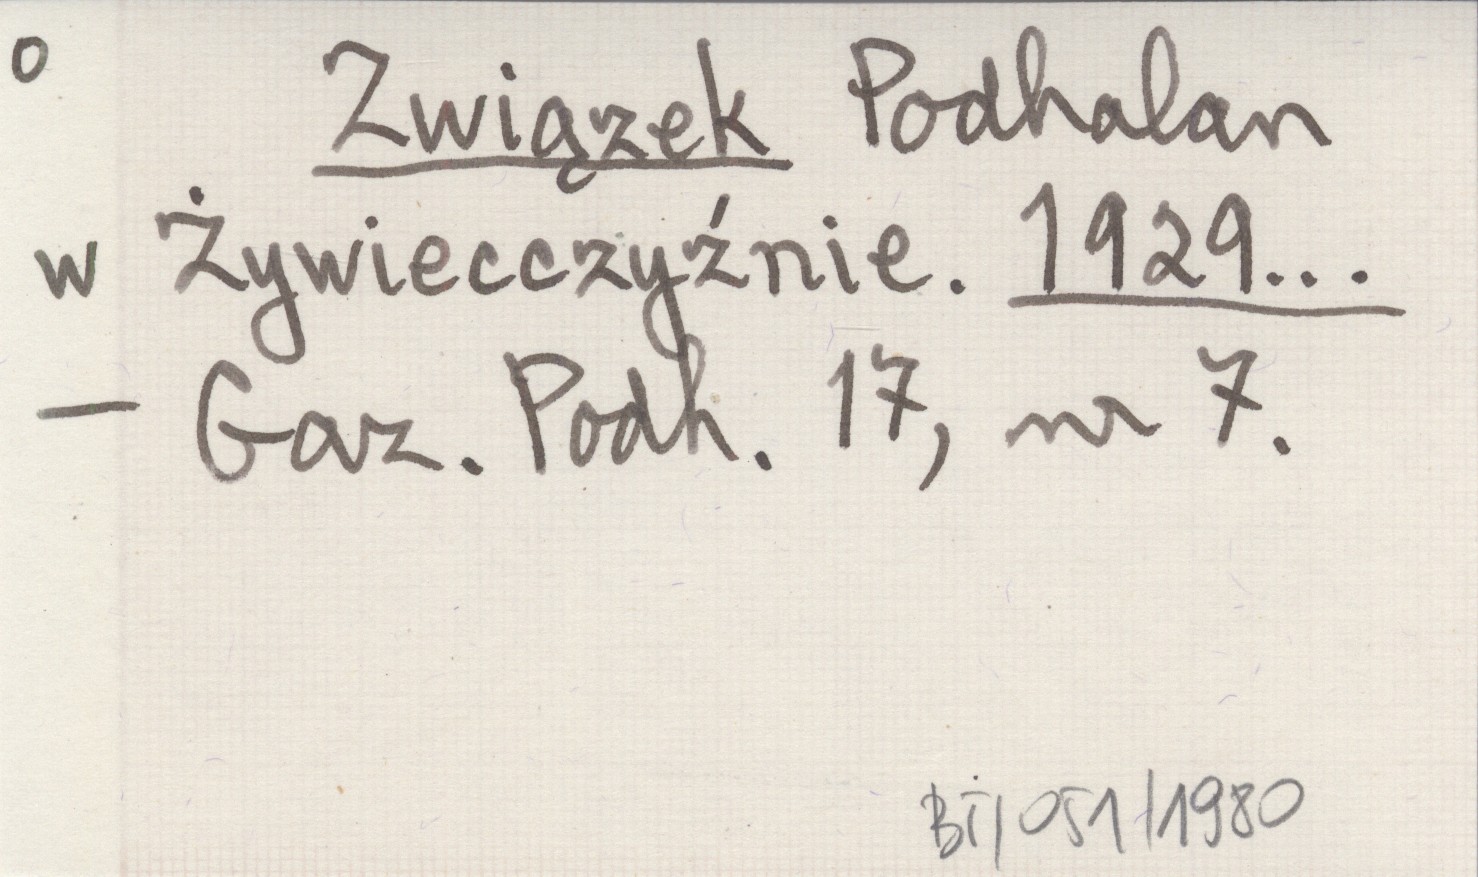 o
Związek Podhalan
w Żywiecczyźnie. 1929...
— Gaz. Podh. 17, nr 7.
BT/051/1980